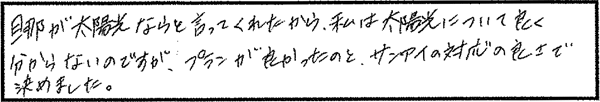 旦那が太陽光ならと言ってくれたから、私は太陽光について良く
分からないのですが、プランが良かったのと、サンアイの対応の良さで
決めました。